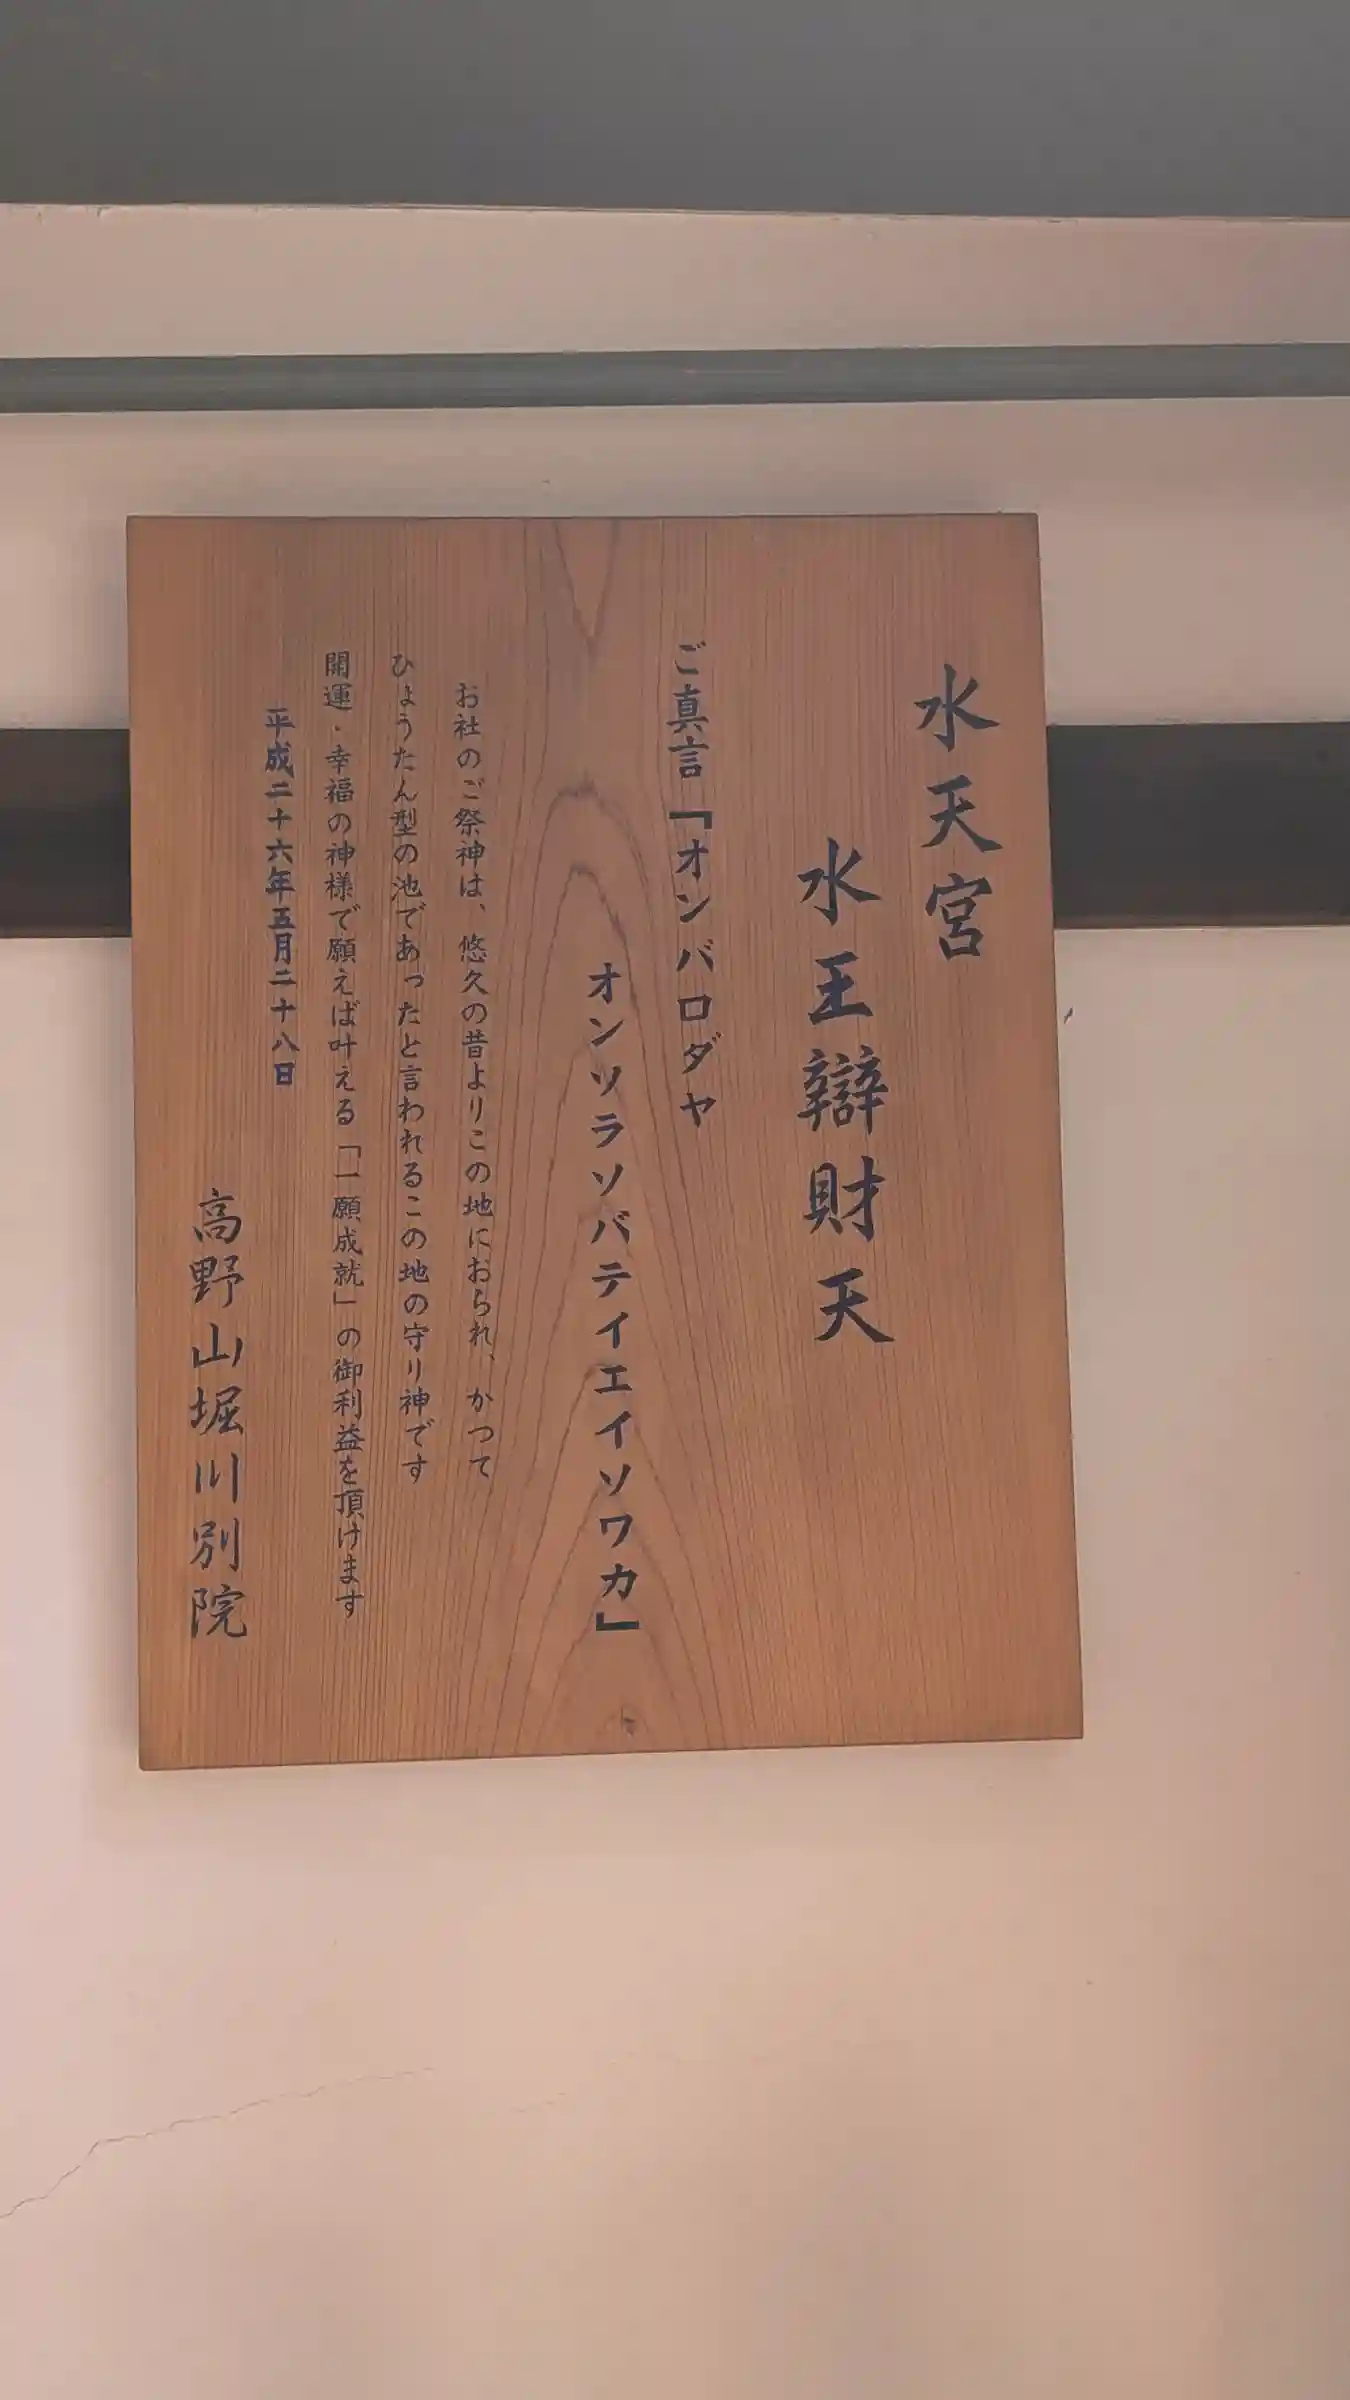 水天宮
水王辯財天
ご真言『オンバロダヤ
オンソラソバテイエイソワカ』
お社のご祭神は、悠久の昔よりこの地におられ、かつて
ひょうたん型の池であったと言われるこの地の守り神です
開運・幸福の神様で願えば叶える「一願成就」の御利益を頂けます
平成二十六年五月二十八日
高野山堀川別院